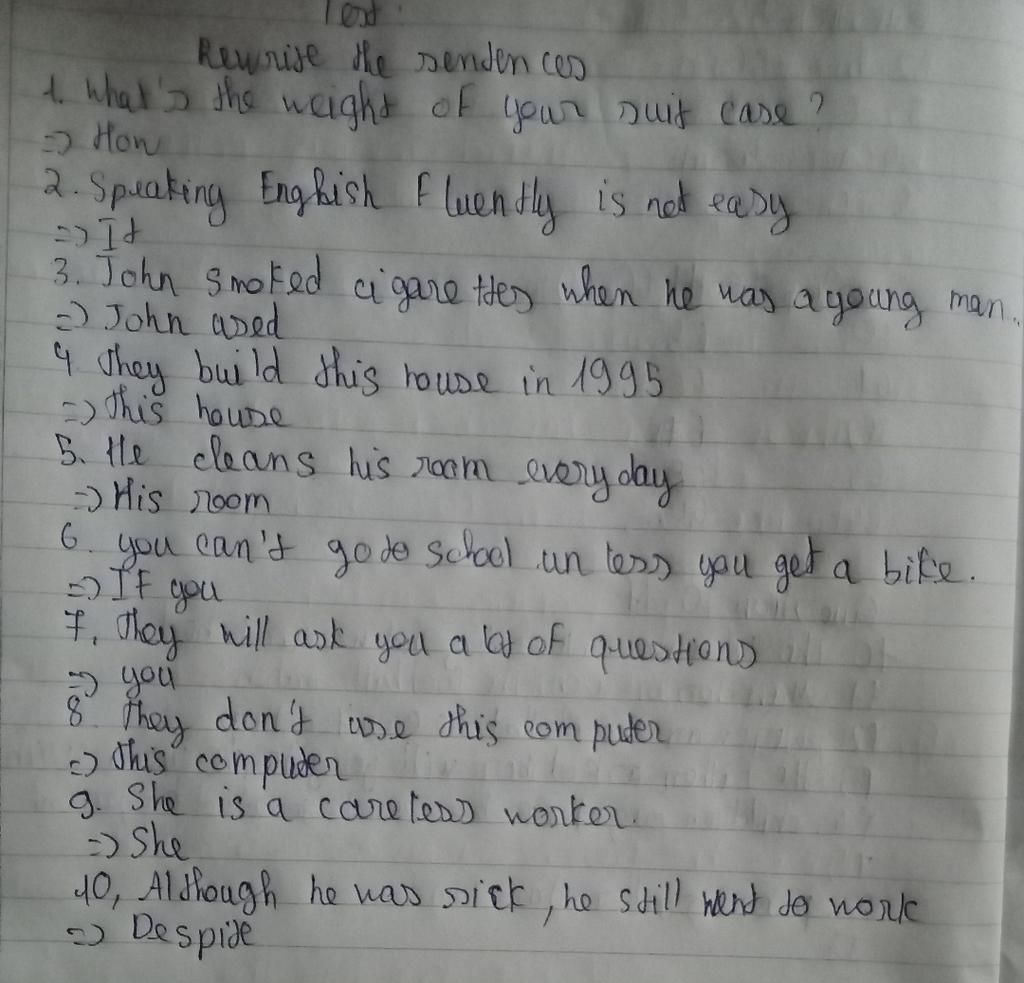 Test
Rewrite the sentences
1. What's the weight of your suit case?
=> How
2. Speaking English Fluently is not easy
=> It
3. John smoked cigarettes when he was a young man.
=> John used
4 They build this house in 1995
=> This house
5. He cleans his room everyday
=> His room
6. you can't go to school unless you get a bike.
=> If you
7, They will ask you a lot of questions
=> you
8. They don't use this computer
=> This computer
9. She is a careless worker.
=> She
10, Although he was sick, he still went to work
=> Despite